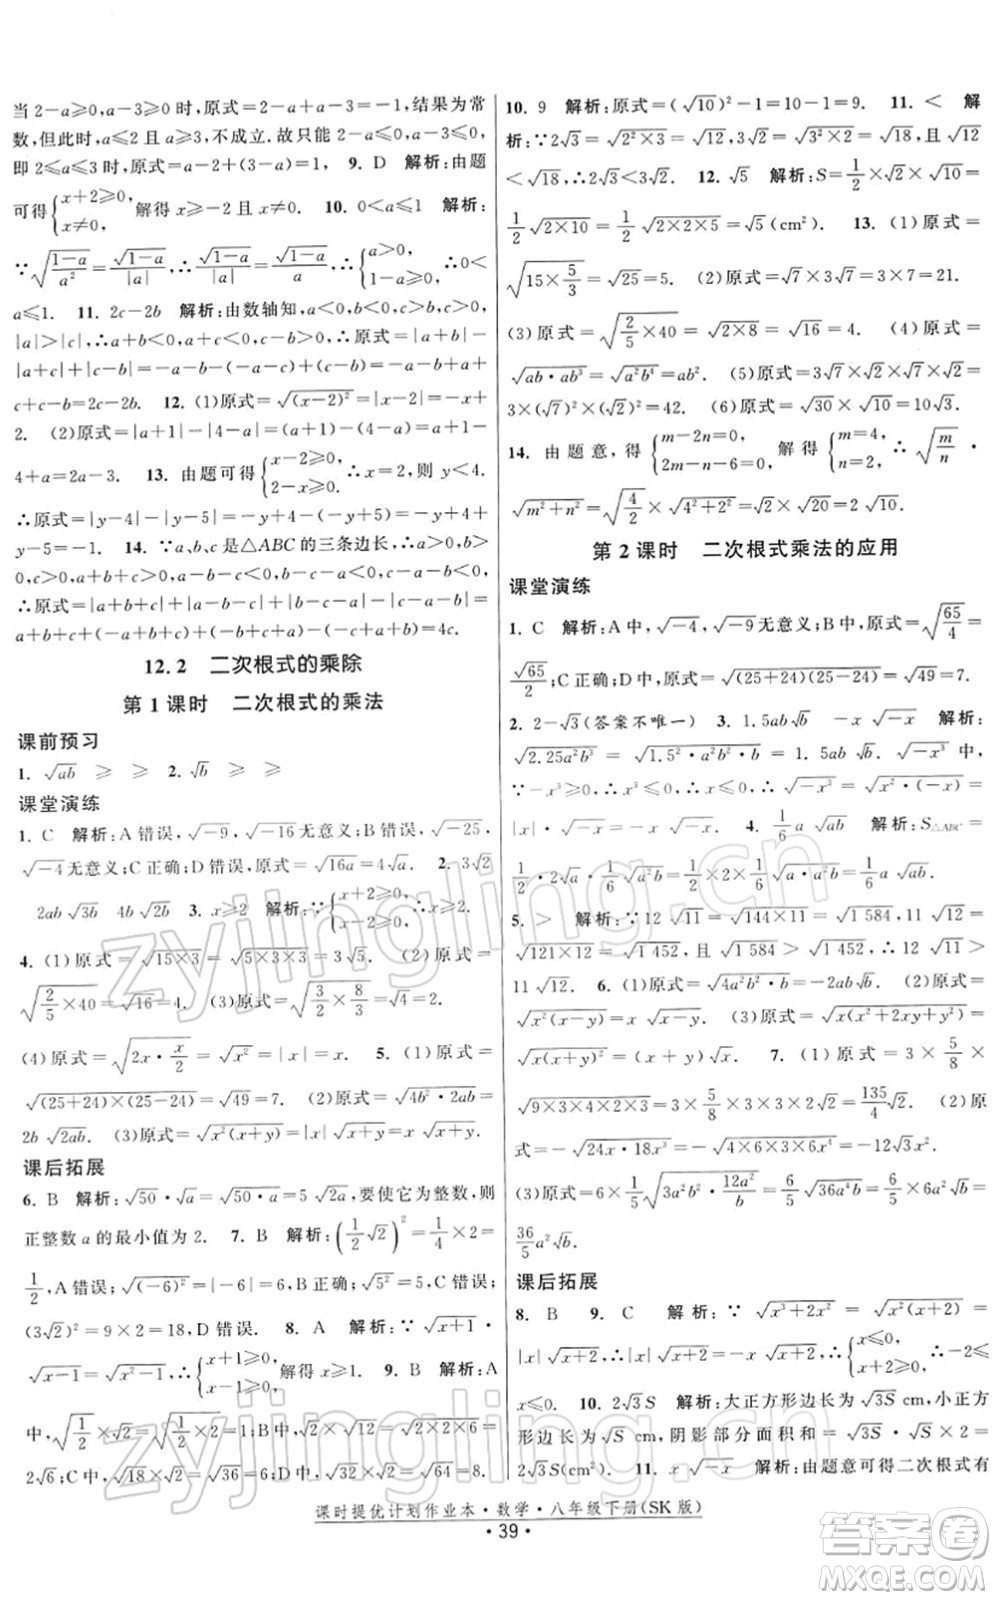 当2-a≥0,a-3≥0时,原式=2-a+a-3=-1,结果为常
数,但此时,a≤2且a≥3,不成立.故只能2-a≤0,a-3≤0,
即2≤a≤3时,原式=a-2+(3-a)=1, 9. D 解析:由题
可得{x+2≥0, x≠0, 解得x≥-2且x≠0. 10. 0<a≤1 解析:
∵√((1-a)/a²)=√(1-a)/|a|,∴√(1-a)/|a|=√(1-a)/a,∴{a>0, 1-a≥0. ∴0<
a≤1. 11. 2c-2b 解析:由数轴知,a<0,b<0,c>b,c>0,
|a|>|c|,∴a+b<0,a+c<0,c-b>0,∴原式=|a+b|-
|a+c|+|c-b|=-a-b-(-a-c)+(c-b)=-a-b+a+
c+c-b=2c-2b. 12. (1)原式=√((x-2)²)=|x-2|=x-
2. (2)原式=|a+1|-|4-a|=(a+1)-(4-a)=a+1-
4+a=2a-3. 13. 由题可得{x-2≥0, 2-x≥0, ∴x=2,则y<4.
∴原式=|y-4|-|y-5|=-(y-4)+(y-5)=-y+4+
y-5=-1. 14. ∵a、b、c是△ABC的三条边长,∴a>0,b>
0,c>0,a+b>c,a+c>b,b+c>a,∴a+b+c>0,a+b-
c>0,b-c-a<0,c+b-a>0,∴原式=|a+b+c|+|a+b-c|+|b-c-a|+|c+b-a|=
a+b+c+(a+b-c)-(b-c-a)+(c+b-a)=4c.
12.2 二次根式的乘除
第1课时 二次根式的乘法
课前预习
1. √ab ≥ ≥ 2. √b ≥ ≥
课堂演练
1. C 解析:A错误,√-9,√-16无意义;B错误,√-25,
√-4无意义;C正确;D错误,原式=√16a=4√a. 2. 3√2
2ab√3b 4b√2a 3. x≥2 解析:∵{x+2≥0, x-2≥0, ∴x≥2.
4. (1)原式=√(15×3)=√(5×3×3)=3√5. (2)原式=
√(2/5×40)=√16=4. (3)原式=√(3/2×8/3)=√4=2.
(4)原式=√(2x·x/2)=√x²=|x|=x. 5. (1)原式=
√((25+24)×(25-24))=√49=7. (2)原式=√(4b²·2ab)=
2b√2ab. (3)原式=√(x²(x+y))=|x|√(x+y)=x√(x+y).
课后拓展
6. B 解析:√50·√a=√(50·a)=5√2a,要使它为整数,则
正整数a的最小值为2. 7. B 解析:(1/2√2)²=1/4×2=
1/2,A错误;√((-6)²)=|-6|=6,B正确;√5²=5,C错误;
(3√2)²=9×2=18,D错误. 8. A 解析:∵√(x+1)·
√(x-1)=√(x²-1),∴{x+1≥0, x-1≥0, 解得x≥1. 9. B 解析:A
中,√(1/2)×√2=√(1/2×2)=1;B中,√4×√6=√(2×2×6)=
2√6;C中,√18×√2=√36=6;D中,√32×√2=√64=8.
10. 9 解析:原式=(√10)²-1=10-1=9. 11. < 解
析:∵2√3=√(2²×3)=√12,3√2=√(3²×2)=√18,且√12
<√18,∴2√3<3√2. 12. √5 解析:S=1/2×√2×√10=
1/2√(2×10)=1/2√(2×2×5)=√5(cm²). 13. (1)原式=
√(15×5/3)=√25=5. (2)原式=√7×3√7=3×7=21.
(3)原式=√(2/5×40)=√(2×8)=√16=4. (4)原式=
√(ab·ab³)=√(a²b⁴)=ab². (5)原式=3√7×√2×√7×√2=
3×(√7)²×(√2)²=42. (6)原式=√30×√10=10√3.
14. 由题意,得{m-2n=0, 2m-n-6=0, 解得{m=4, n=2, ∴√(m/n)·
√(m²+n²)=√(4/2)×√(4²+2²)=√2×2√5=2√10.
第2课时 二次根式乘法的应用
课堂演练
1. C 解析:A中,√-4,√-9无意义;B中,原式=√(65/4)=
√65/2;C正确;D中,原式=√((25+24)(25-24))=√49=7.
2. 2-√3(答案不唯一) 3. 1.5ab√b -x√-x 解析:
√(2.25a²b³)=√(1.5²·a²b²·b)=1.5ab√b;√(-x³)中,
∵-x³≥0,∴x³≤0,∴x≤0,∴√(-x³)=√(x²·(-x))=
|x|·√-x=-x√-x. 4. 1/6a√ab 解析:S△ABC=
1/2·√a·1/3√(a²b)=1/6√(a·a²b)=1/6√(a²·ab)=1/6a√ab.
5. > 解析:∵12√11=√(144×11)=√1 584,11√12=
√(121×12)=√1 452,且√1 584>√1 452,∴12√11>
11√12. 6. (1)原式=-√(4a²b²·b)=-2ab√b. (2)原式=
√(x²(x-y))=x√(x-y). (3)原式=√(x(x²+2xy+y²))=
√(x(x+y)²)=(x+y)√x. 7. (1)原式=3×5/8×
√(9×3×4×2×3)=3×5/8×3×3×2√2=135/4√2. (2)原
式=-√(24x·18x³)=-√(4×6×3×6x⁴)=-12√3x².
(3)原式=6×1/5√(3a²b²·12a²/b)=6/5√(36a⁴b)=6/5×6a²√b=
36/5a²√b.
课后拓展
8. B 9. C 解析:∵√(x³+2x²)=√(x²(x+2))=
|x|√(x+2)=-x√(x+2),∴{x≤0, x+2≥0, ∴-2≤
x≤0. 10. 2√3S 解析:大正方形边长为√3S cm,小正方
形边长为√S cm,阴影部分面积和=2√S×√3S=
2√3S(cm²). 11. x√-x 解析:由题意可得二次根式有
课时提优计划作业本·数学·八年级下册(SK版)
·39·
zyjingling.cn
zyjingling.cn
答案圈
MXQE.COM